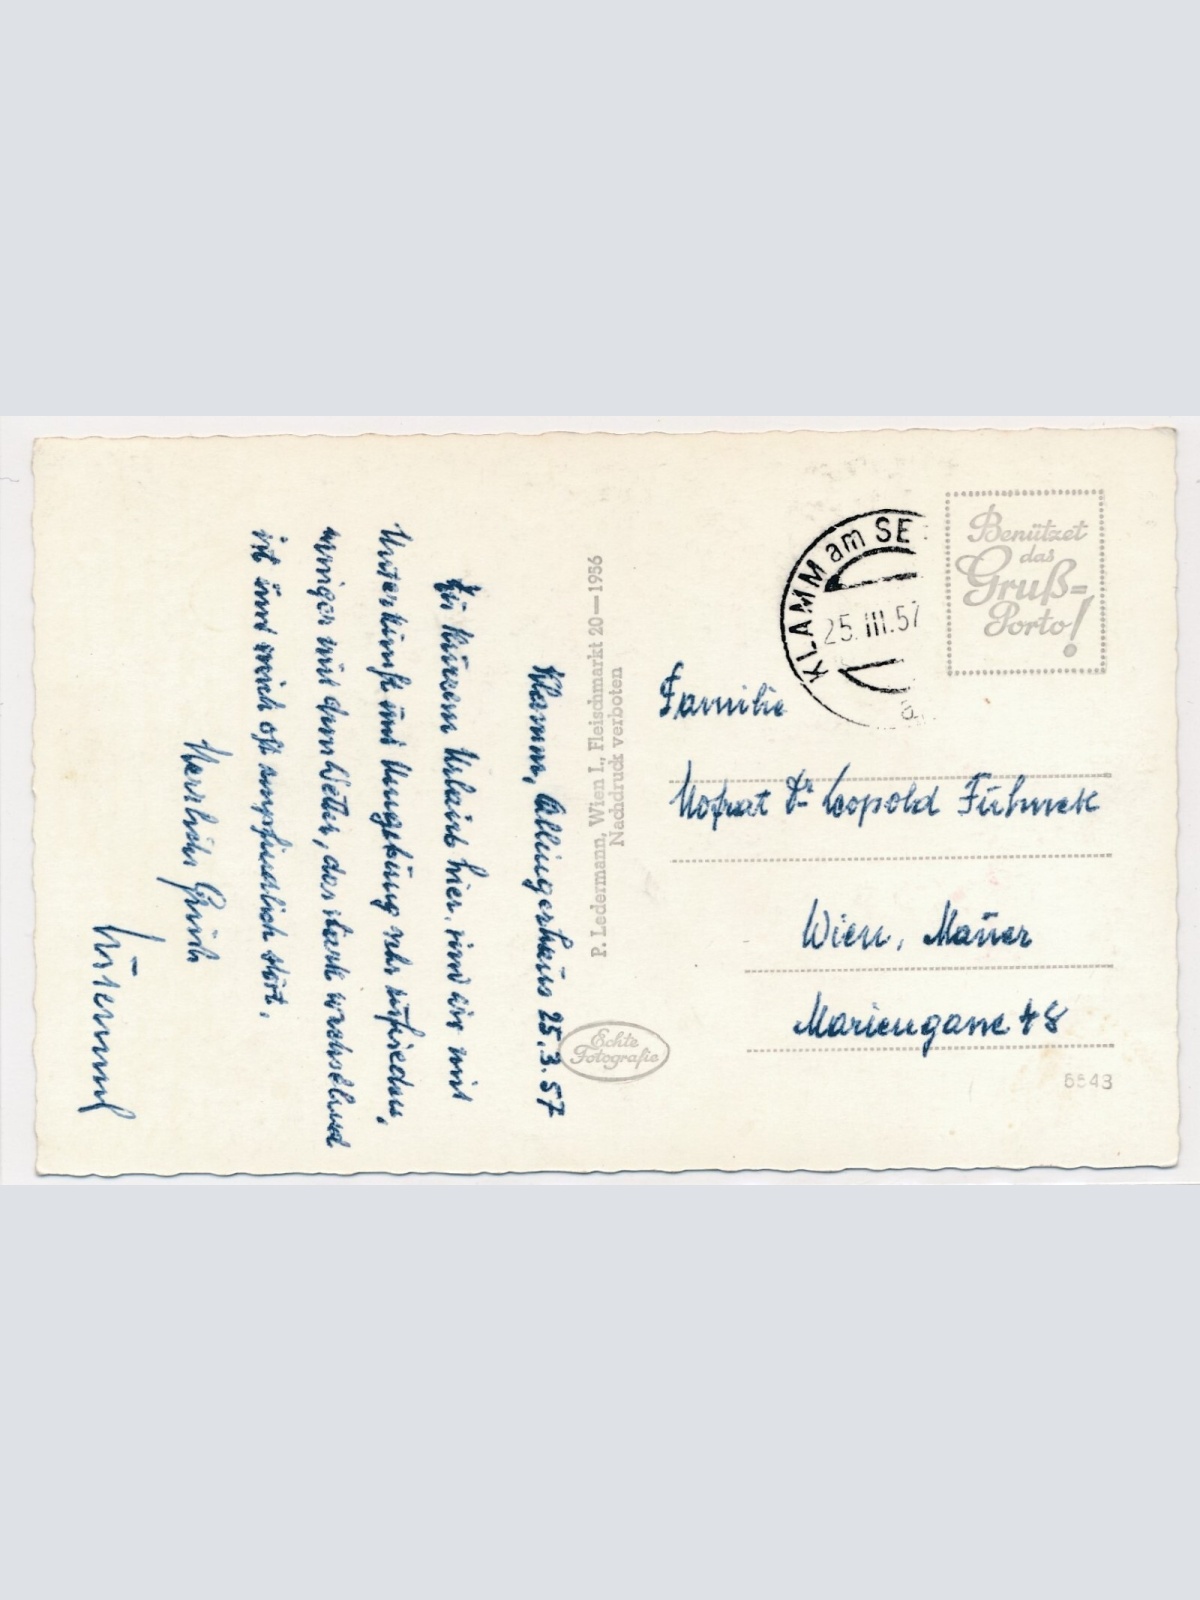 Klamm, Ollingerhaus 25.3.57
Zu kurzem Urlaub hier, sind wir mit
Unterkunft und Umgebung sehr zufrieden,
weniger mit dem Wetter, das stark wechselnd
ist und mich oft empfindlich stört.
Herzliche Grüße
P. Ledermann, Wien I., Fleischmarkt 20—1956
Nachdruck verboten
Echte
Fotografie
KLAMM am SE
25.III.57
a
Benützet
das
Gruß=
Porto!
Familie
Hofrat Dr Leopold
Wien, Mauer
Mariengasse 48
6543